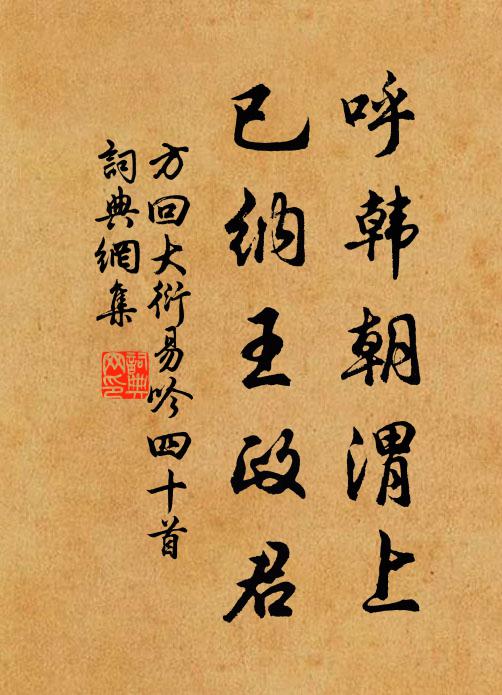 呼韩朝渭上
已纳王政君
方回大衍易吟四十首
詞典網集